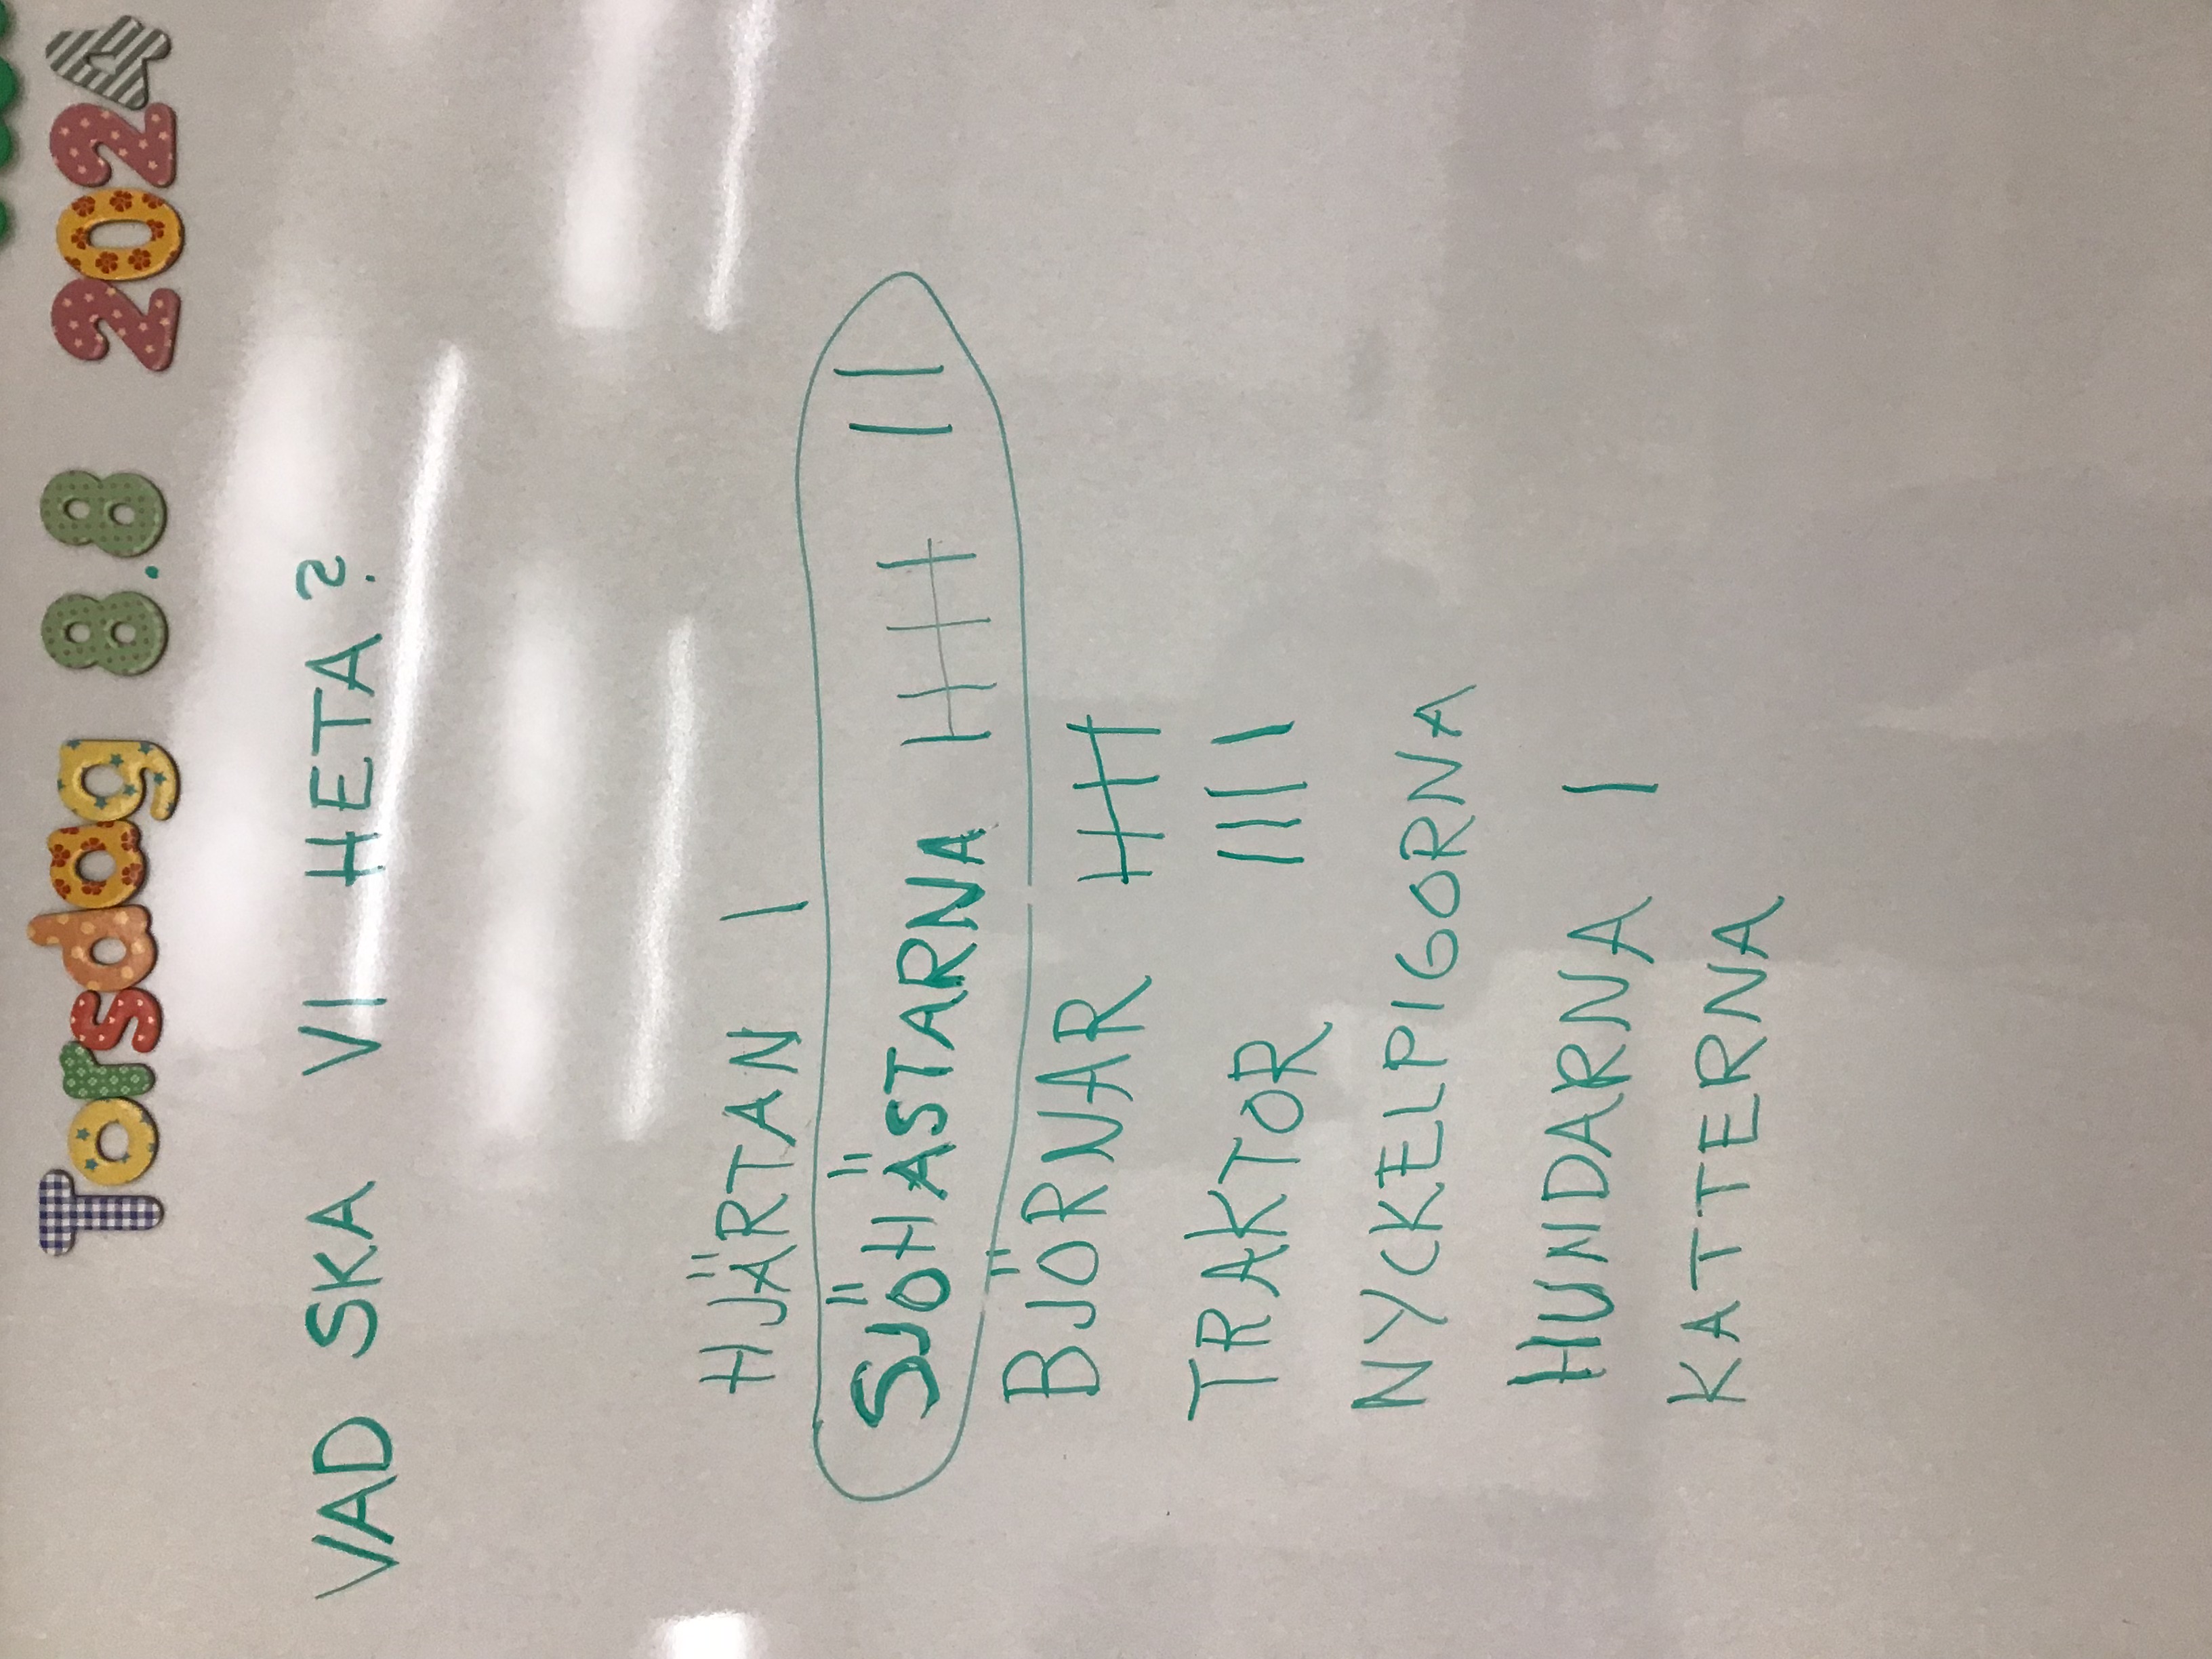 Torsdag 8.8 2024
VAD SKA VI HETA?
HJÄRTAN |
SJÖHÄSTARNA 卌 ||
BJÖRNAR 卌
TRAKTOR ||||
NYCKELPIGORNA
HUNDARNA |
KATTERNA